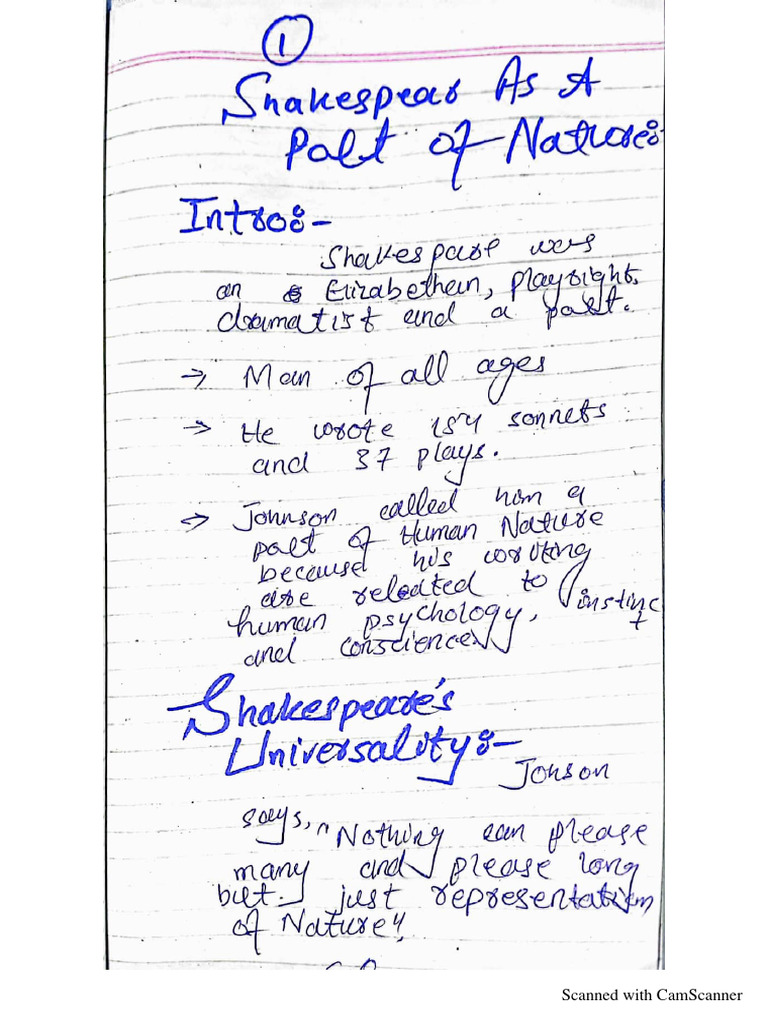 1
Shakespear As A
Poet of Nature:-
Intro:-
Shakespare was
an Elizabethan, playright,
dramatist and a poet.
→ Man of all ages
→ He wrote 154 sonnets
and 37 plays.
→ Johnson called him a
poet of Human Nature
because his writing
are related to
human psychology, instinct
and conscience
Shakespeare's
Universality:-
Jonson
says, "Nothing can please
many and please long
but just representation
of Nature"
Scanned with CamScanner